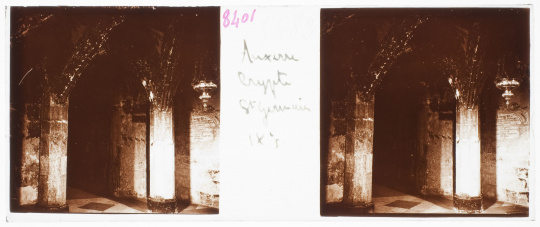 8401
Auxerre
Crypte
St Germain
IXe s